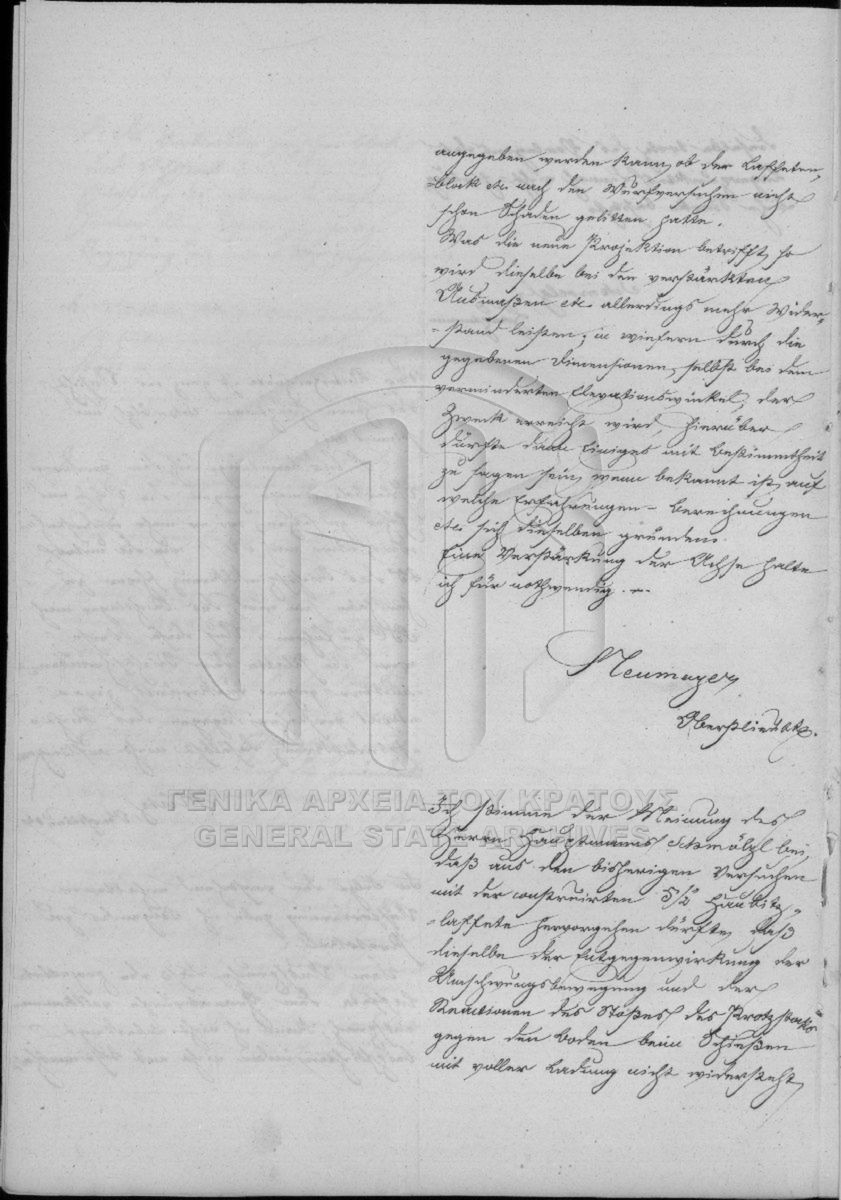 angegeben werden kann, ob der Laffeten-
-block etc. nach den Wurfversuchen nicht
schon Schaden gelitten hatte.
Was die neue Projektion betrifft, so
wird dieselbe bei den verstärkten
Ausmaßen etc. allerdings mehr Wider-
-stand leisten; in wiefern durch die
gegebenen Dimensionen, selbst bei dem
verminderten Elevationswinkel, der
Zweck erreicht wird, hierüber
dürfte dann Einiges mit Bestimmtheit
zu sagen sein, wenn bekannt ist, auf
welche Erfahrungen - Berechnungen
etc. sich dieselben gründen.
Eine Verstärkung der Achse halte
ich für nothwendig.
Neumayer
Oberstlieut.
ΓΕΝΙΚΑ ΑΡΧΕΙΑ ΤΟΥ ΚΡΑΤΟΥΣ
GENERAL STATE ARCHIVES
Ich stimme der Meinung des
Herrn Hauptmanns Schmölzl bei,
daß aus den bisherigen Versuchen
mit der construirten 5½ Haubitz-
-laffete hervorgehen dürfte, daß
dieselbe der Entgegenwirkung der
Umschwungsbewegung und der
Reactionen des Stoßes des Protzstocks
gegen den Boden beim Schießen
mit voller Ladung nicht widersteht,